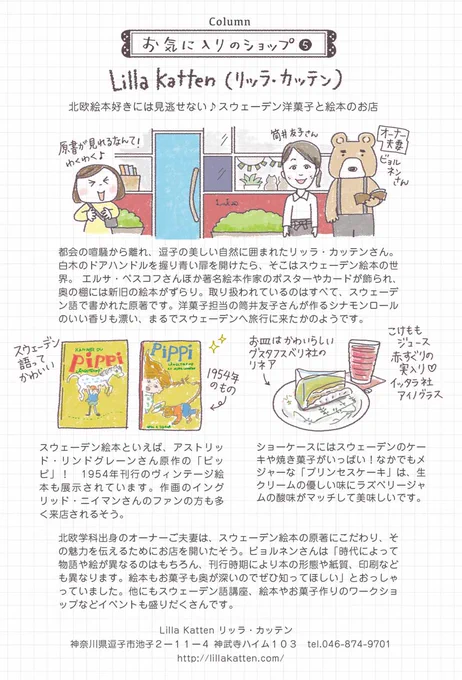 Column
お気に入りのショップ❺
Lilla Katten (リッラ・カッテン)
北欧絵本好きには見逃せない♪スウェーデン洋菓子と絵本のお店
原書が見れるなんて!
わくわくよ
筒井友子さん
オーナー
夫妻
ビョル
ネン
さん
都会の喧騒から離れ、逗子の美しい自然に囲まれたリッラ・カッテンさん。
白木のドアハンドルを握り青い扉を開けたら、そこはスウェーデン絵本の世
界。 エルサ・ベスコフさんほか著名絵本作家のポスターやカードが飾られ、
奥の棚には新旧の絵本がずらり。取り扱われているのはすべて、スウェーデ
ン語で書かれた原書です。洋菓子担当の筒井友子さんが作るシナモンロール
のいい香りも漂い、まるでスウェーデンへ旅行に来たかのようです。
スウェーデン
語って
かわいい
PIPPI
PIPPI
1954年
のもの
お皿はかわいらしい
グスタフスベリ社の
リネア
こけもも
ジュース
赤すぐりの
実入り♡
イッタラ社
アイノグラス
スウェーデン絵本といえば、アストリッ
ド・リンドグレーンさん原作の「ピッ
ピ」! 1954年刊行のヴィンテージ絵
本も展示されています。作画のイング
リッド・ニイマンさんのファンの方も多
く来店されるそう。
ショーケースにはスウェーデンのケー
キや焼き菓子がいっぱい!なかでもメ
ジャーな「プリンセスケーキ」は、生
クリームの優しい味にラズベリージャ
ムの酸味がマッチして美味しいです。
北欧学科出身のオーナーご夫妻は、スウェーデン絵本の原著にこだわり、そ
の魅力を伝えるためにお店を開いたそう。ビョルネンさんは「時代によって
物語や絵が異なるのはもちろん、刊行時期により本の形態や紙質、印刷など
も異なります。絵本もお菓子も奥が深いのでぜひ知ってほしい」とおっしゃ
っていました。他にもスウェーデン語講座、絵本やお菓子作りのワークショ
ップなどイベントも盛りだくさんです。
Lilla Katten リッラ・カッテン
神奈川県逗子市池子2ー11ー4 神武寺ハイム103 tel.046-874-9701
http://lillakatten.com/